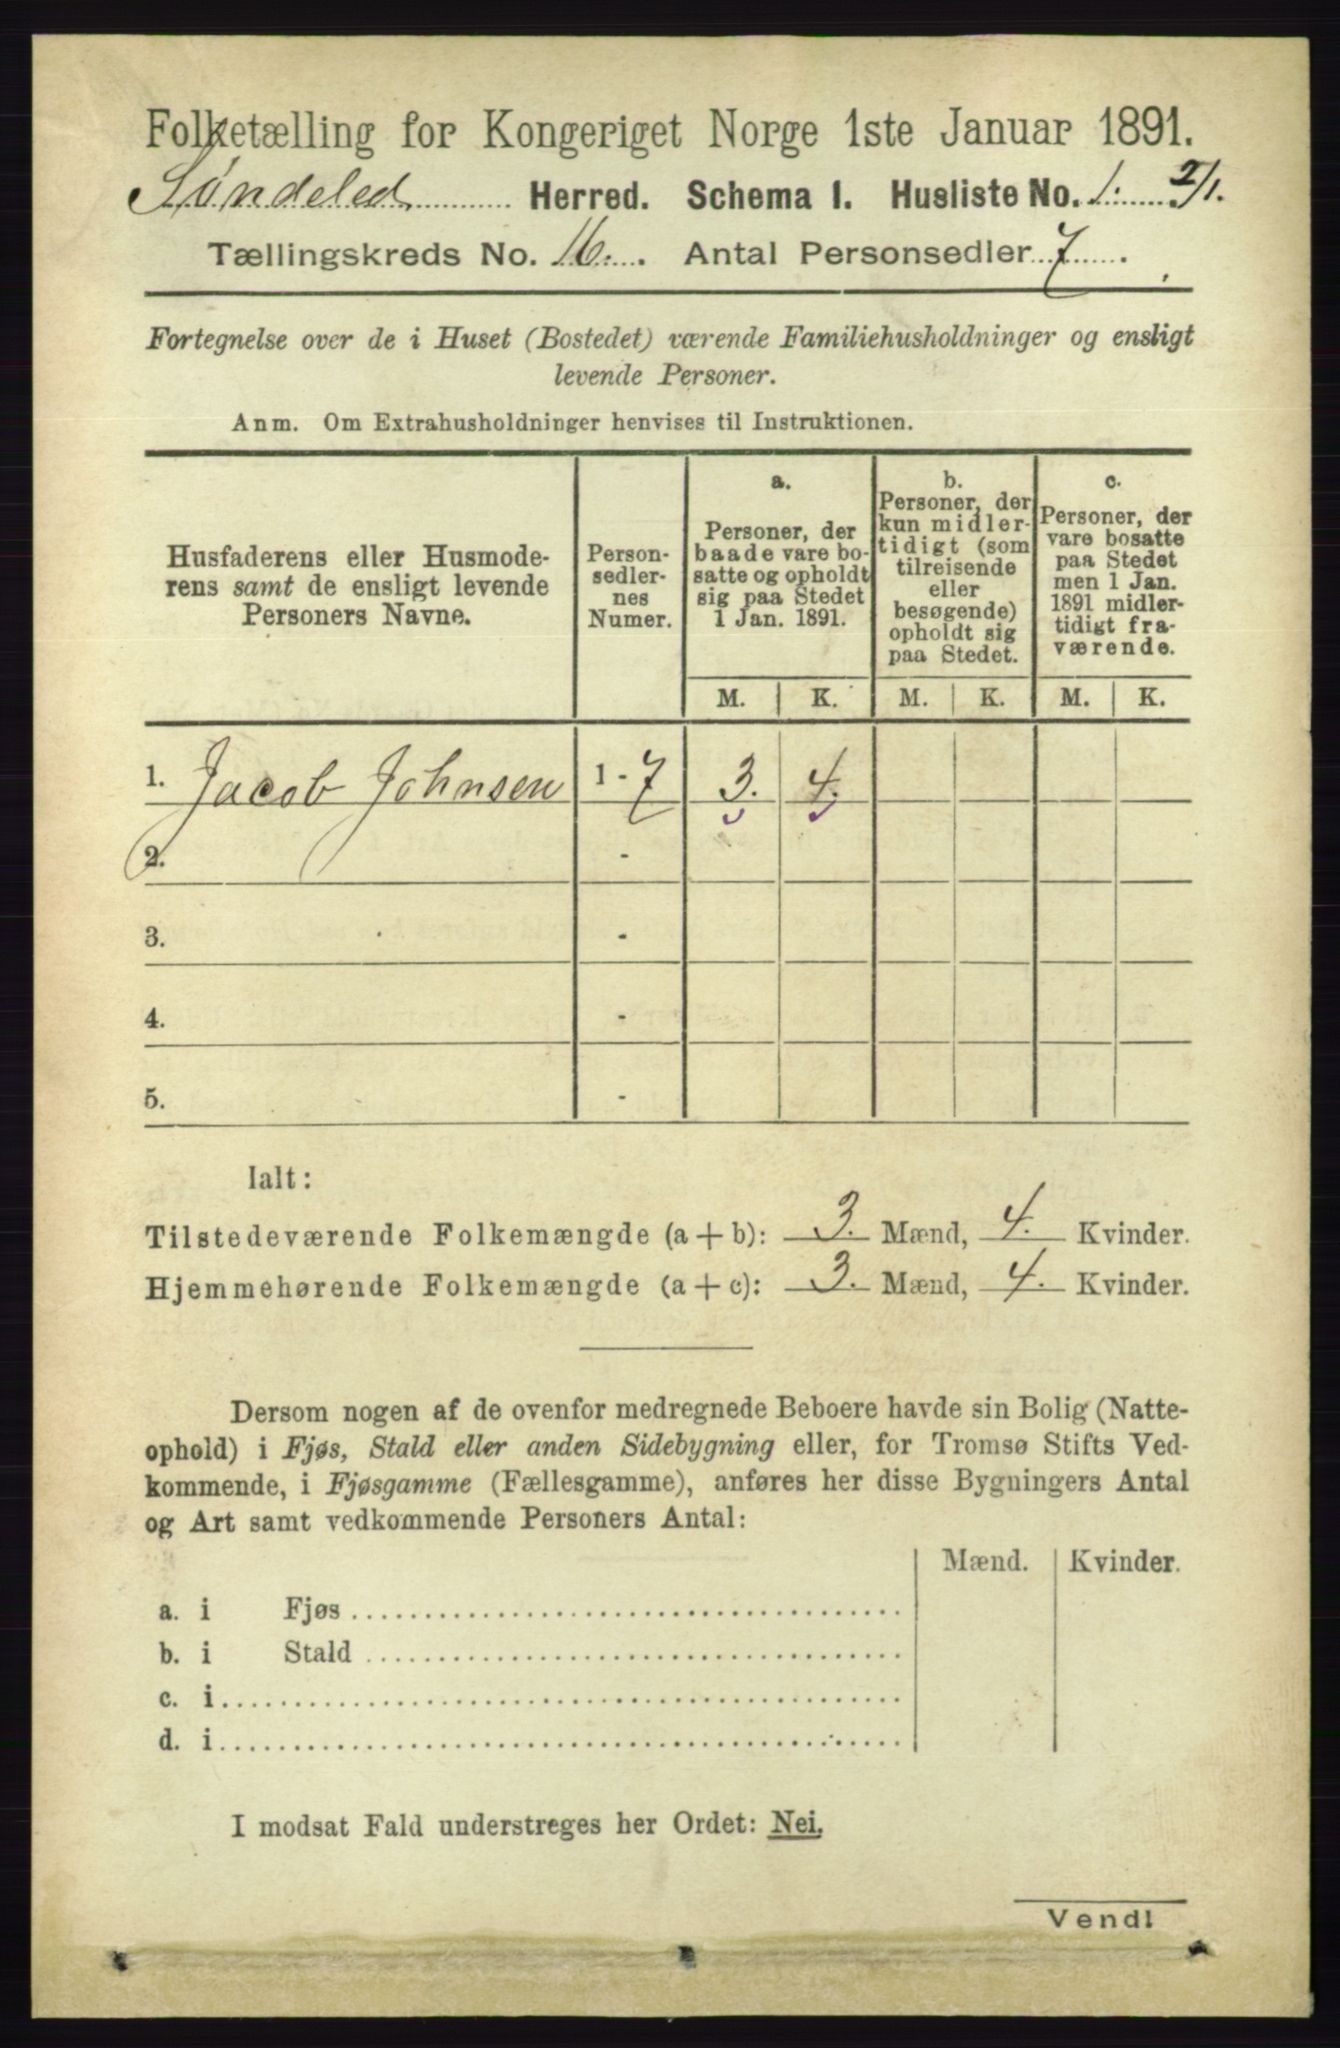 Folketælling for Kongeriget Norge 1ste Januar 1891.
Søndeled Herred. Schema 1. Husliste No. 1. 2/1.
Tællingskreds No. 16. Antal Personsedler 7.
Fortegnelse over de i Huset (Bostedet) værende Familiehusholdninger og ensligt
levende Personer.
Anm. Om Extrahusholdninger henvises til Instruktionen.
Husfaderens eller Husmode-
rens samt de ensligt levende
Personers Navne.
Person-
sedler-
nes
Numer.
a.
Personer, der
baade vare bo-
satte og opholdt
sig paa Stedet
1 Jan. 1891.
b.
Personer, der
kun midler-
tidigt (som
tilreisende
eller
besøgende)
opholdt sig
paa Stedet.
c.
Personer, der
vare bosatte
paa Stedet
men 1 Jan.
1891 midler-
tidigt fra-
værende.
M. K. M. K. M. K.
1. Jacob Johnsen 1 - 7 3. 4.
2. -
3. -
4. -
5. -
Ialt:
Tilstedeværende Folkemængde (a + b): 3. Mænd, 4. Kvinder.
Hjemmehørende Folkemængde (a + c): 3. Mænd, 4. Kvinder.
Dersom nogen af de ovenfor medregnede Beboere havde sin Bolig (Natte-
ophold) i Fjøs, Stald eller anden Sidebygning eller, for Tromsø Stifts Ved-
kommende, i Fjøsgamme (Fællesgamme), anføres her disse Bygningers Antal
og Art samt vedkommende Personers Antal:
Mænd. Kvinder.
a. i Fjøs
b. i Stald
c. i
d. i
I modsat Fald understreges her Ordet: Nei.
Vend!